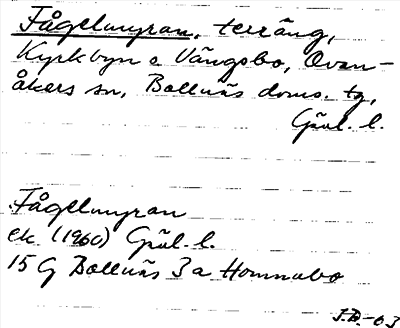 Fågelmyran, terräng,
Kyrkbyn o Vängsbo, Ovan-
åkers sn, Bollnäs doms. tg,
Gävl. l.
Fågelmyran
ek. (1960) Gävl. l.
15 G Bollnäs 3 a Homnabo
J.D.-63